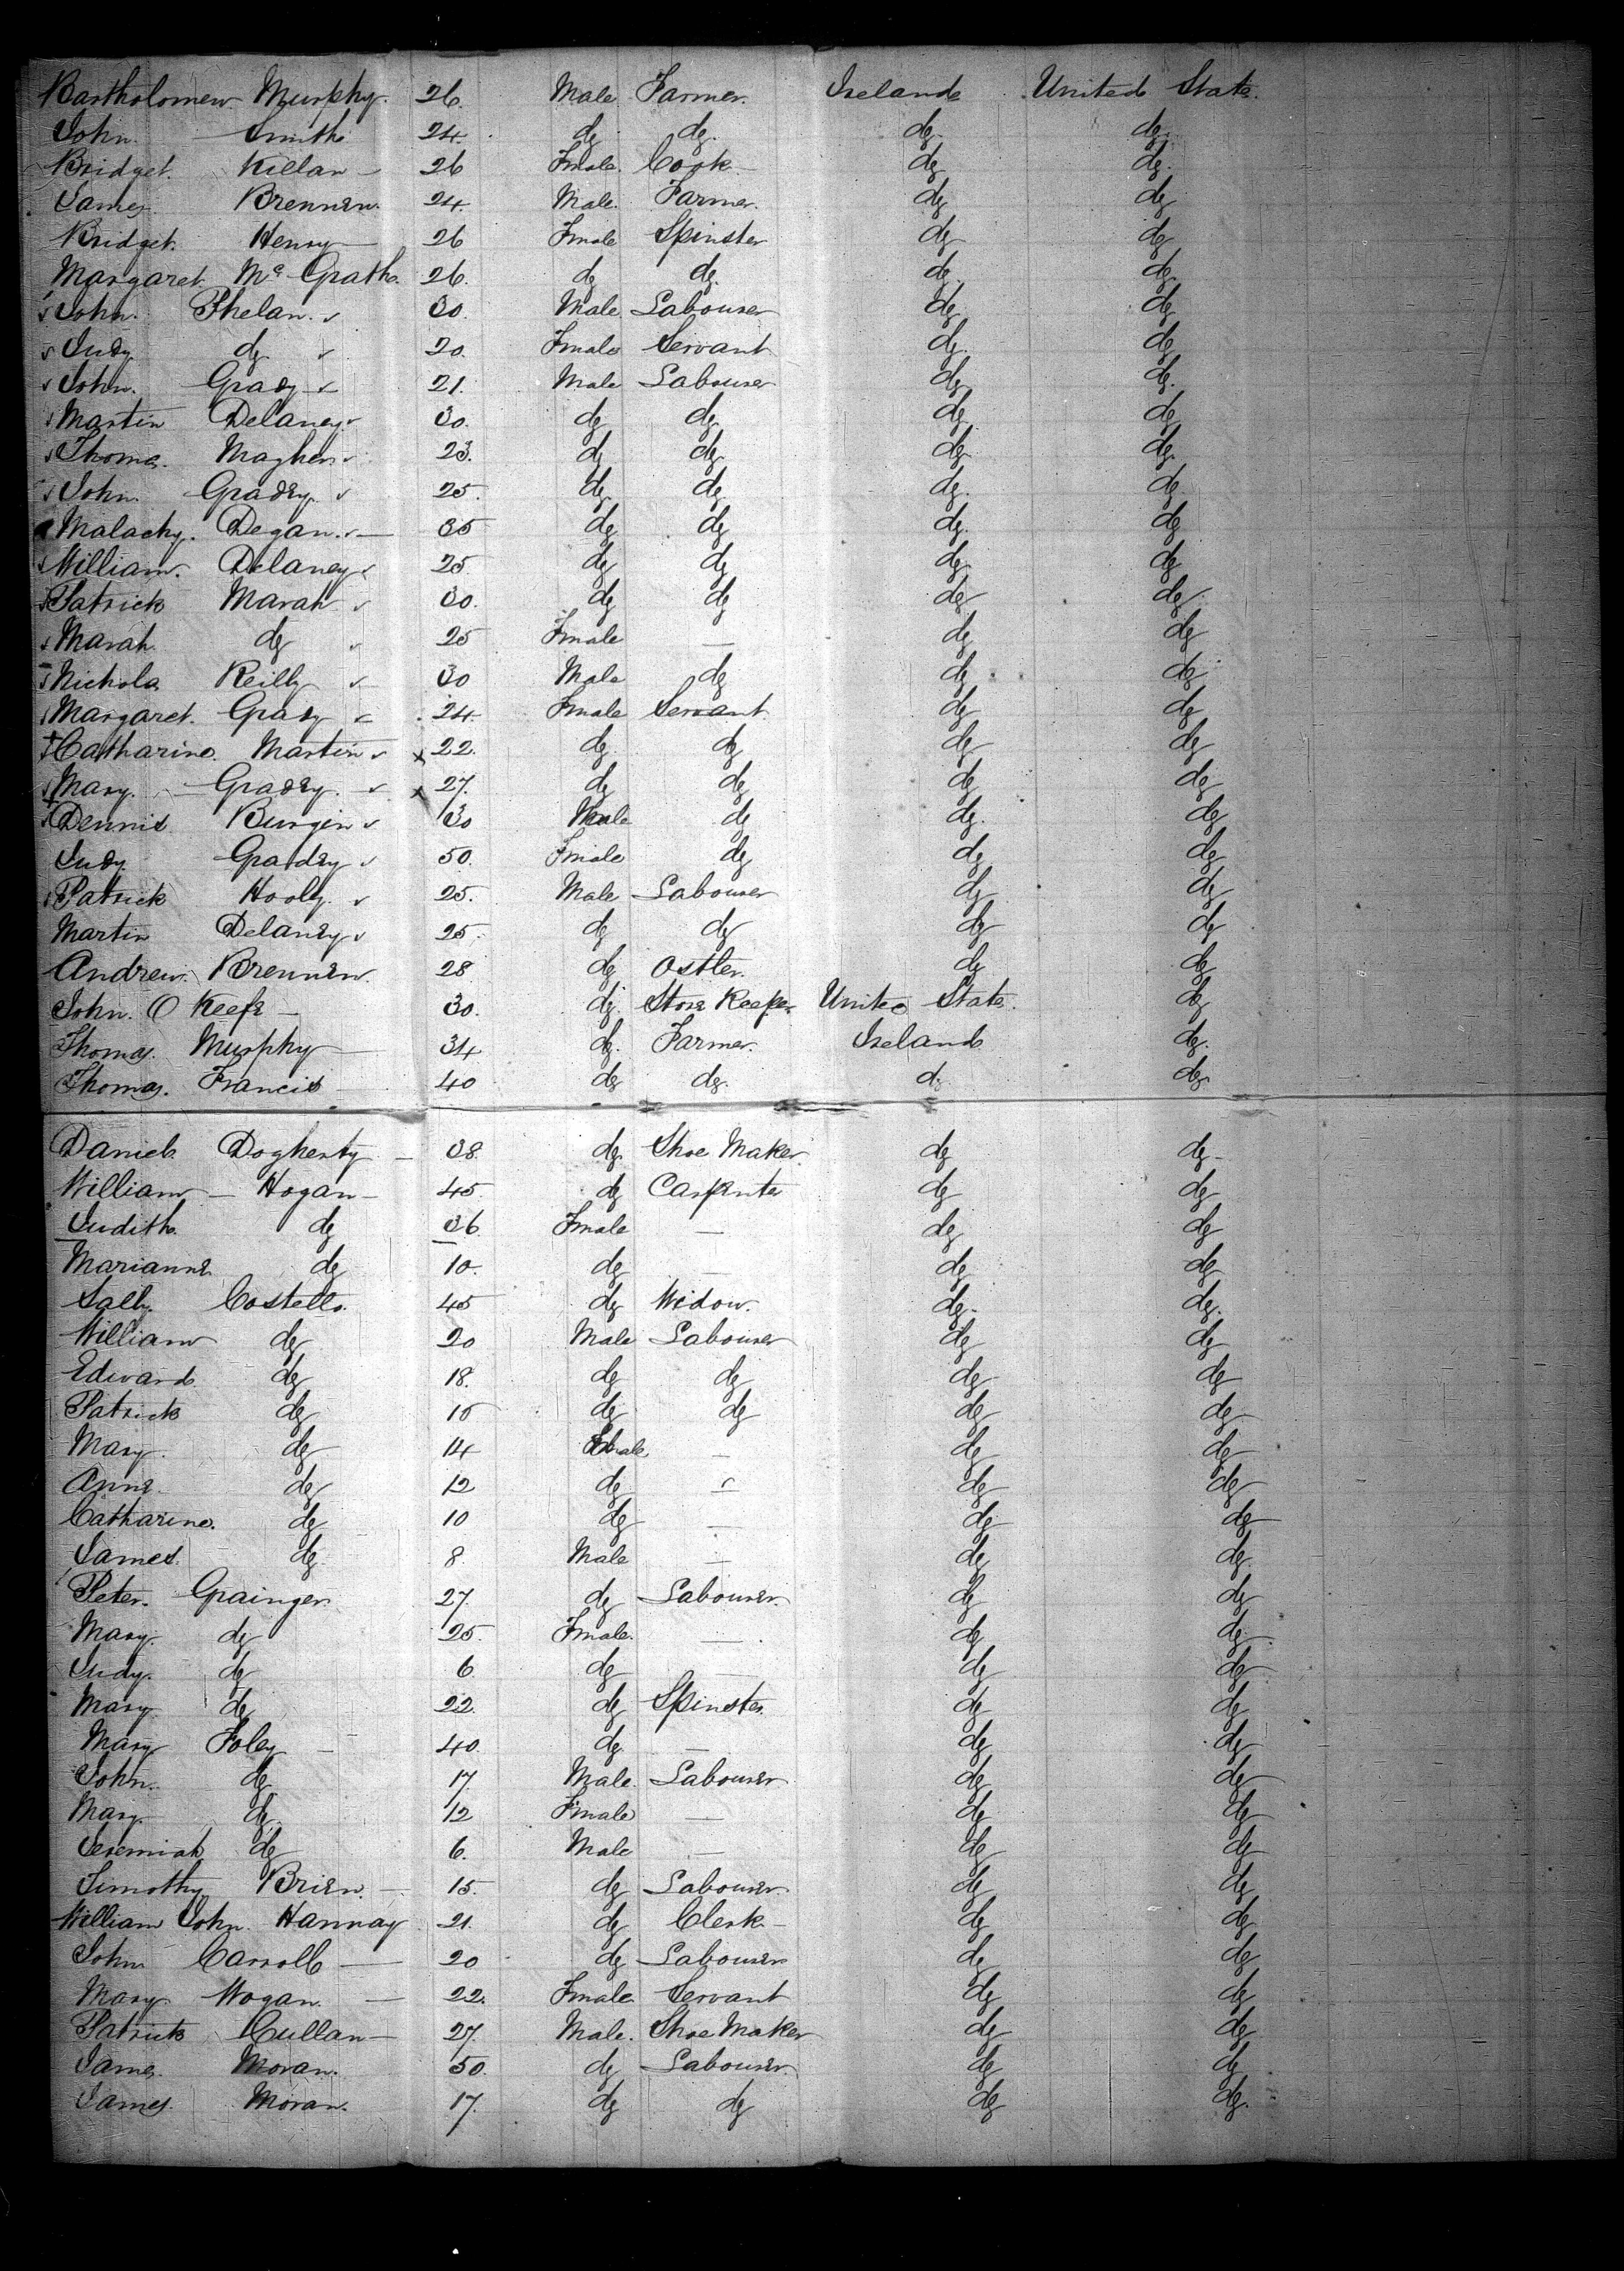 Bartholomew Murphy. 26. Male Farmer. Ireland United State.
John. Smith 24. do do. do. do.
Bridget. Killan 26 Female. Cook do do.
James. Brennen. 24. Male. Farmer. do do
Bridget. Henry 26 Female Spinster do do
Margaret. Mc Grath. 26. do do. do do
John. Phelan. 30. Male Labourer do do
Judy do 20. Female Servant do. do
John. Grady 21. Male Labourer do do.
Martin Delaney. 30. do do do do
Thomas. Magher 23. do do do. do.
John. Gradey. 25. do do do. do
Malachy. Degan. 35 do do do. do
William. Delaney 25 do do do. do
Patrick Marah 30. do do do do
Marah. do 25 Female — do do
Nichola Reilly 30 Male do do do
Margaret. Grady 24 Female Servant. do do
Catharine. Martin 22. do do do do
Mary. Gradey. 27. do do do do
Dennis Burgin 30 Male do do. do
Judy Gradey 50. Female do do do
Patrick Hooly. 25. Male Labourer do do
Martin Delaney 25. do do do do
Andrew. Brennen. 28 do Ostler. do do
John. O Keefe 30. do. Store Keeper United State. do
Thomas. Murphy 34 do. Farmer. Ireland do.
Thomas. Francis 40 do do. do do
Daniel. Dogherty 38. do Shoe Maker. do do
William Hogan 45 do Carpenter do do
Judith. do 36 Female — do do
Marianne. do 10. do — do do
Sally. Costello. 45 do Widow. do. do.
William do 20 Male Labourer do do
Edward do 18. do do do do
Patrick do 15 do do do do
Mary. do 14 Female — do do
Anne. do 12 do — do do
Catharine. do 10 do — do do
James. do 8. Male — do do.
Peter. Grainger. 27. do Labourer. do do
Mary. do 25. Female. — do do.
Judy. do 6. do — do do
Mary do 22. do Spinster. do do
Mary Foley 40. do — do do
John. do 17. Male. Labourer. do do
Mary. do. 12 Female — do do
Jeremiah do 6. Male — do do
Timothy Brien. 15. do Labourer. do do
William John. Hannay 21. do Clerk do do
John Carroll 20 do Labourer do do
Mary Hogan. 22. Female. Servant do do
Patrick Cullan 27. Male. Shoe Maker do do
James. Moran. 50. do Labourer. do do
James. Moran. 17. do do do do.